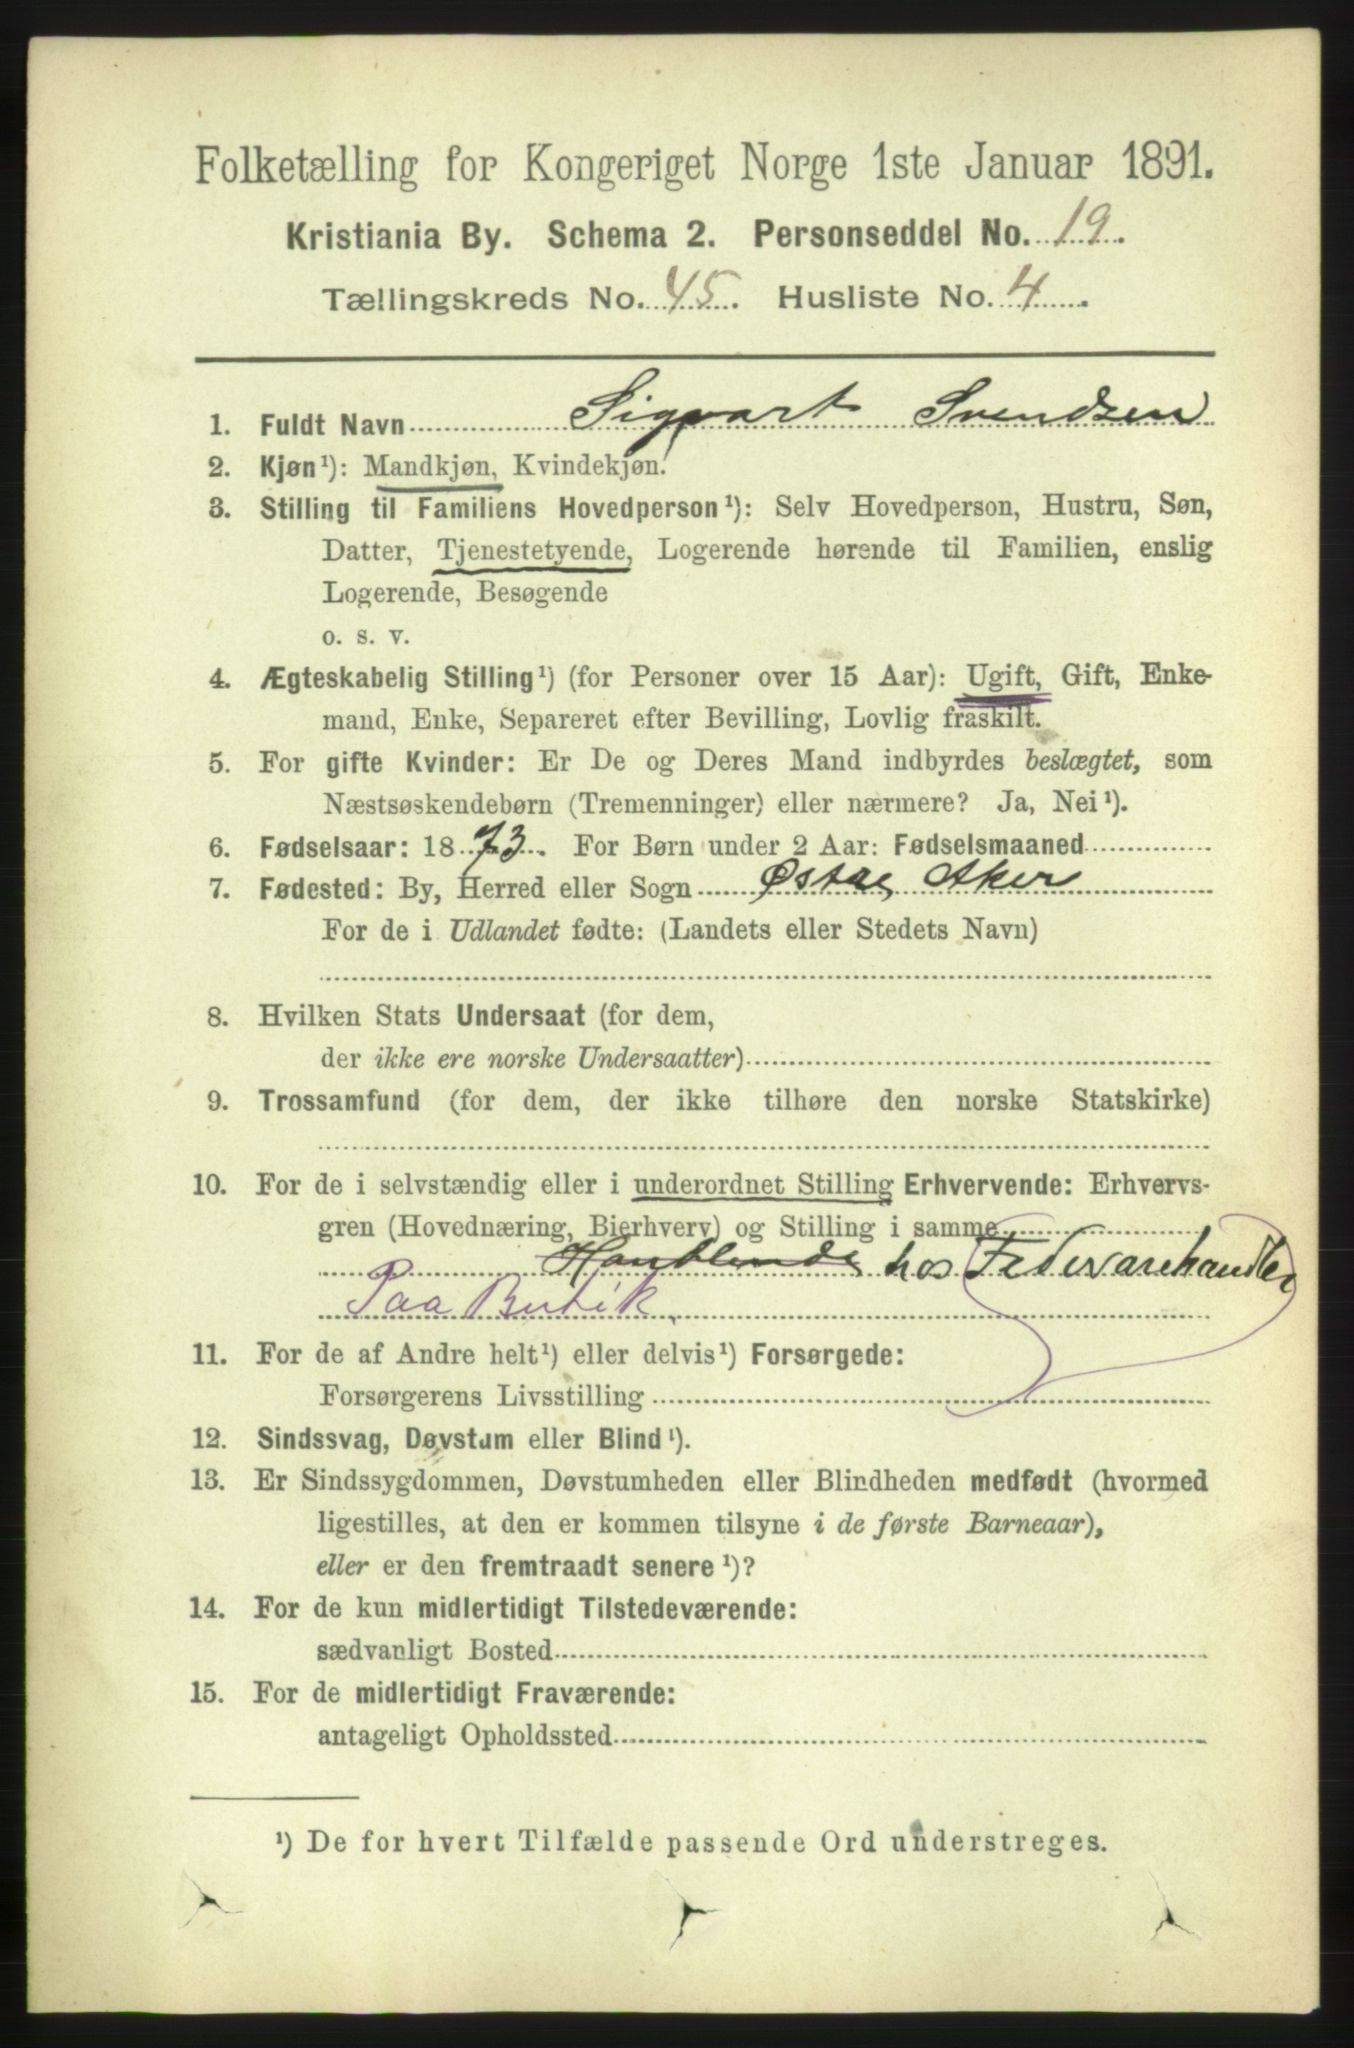 Folketælling for Kongeriget Norge 1ste Januar 1891.
Kristiania By. Schema 2. Personseddel No. 19.
Tællingskreds No. 45. Husliste No. 4.
1. Fuldt Navn Sigvart Svendsen
2. Kjøn¹): Mandkjøn, Kvindekjøn.
3. Stilling til Familiens Hovedperson¹): Selv Hovedperson, Hustru, Søn,
Datter, Tjenestetyende, Logerende hørende til Familien, enslig
Logerende, Besøgende
o. s. v.
4. Ægteskabelig Stilling¹) (for Personer over 15 Aar): Ugift, Gift, Enke-
mand, Enke, Separeret efter Bevilling, Lovlig fraskilt.
5. For gifte Kvinder: Er De og Deres Mand indbyrdes beslægtet, som
Næstsøskendebørn (Tremenninger) eller nærmere? Ja, Nei¹).
6. Fødselsaar: 1873. For Børn under 2 Aar: Fødselsmaaned
7. Fødested: By, Herred eller Sogn Østre Aker
For de i Udlandet fødte: (Landets eller Stedets Navn)
8. Hvilken Stats Undersaat (for dem,
der ikke ere norske Undersaatter)
9. Trossamfund (for dem, der ikke tilhøre den norske Statskirke)
10. For de i selvstændig eller i underordnet Stilling Erhvervende: Erhvervs-
gren (Hovednæring, Bierhverv) og Stilling i samme
hos Fedevarehandler
Paa Butik.
11. For de af Andre helt¹) eller delvis¹) Forsørgede:
Forsørgerens Livsstilling
12. Sindssvag, Døvstum eller Blind¹).
13. Er Sindssygdommen, Døvstumheden eller Blindheden medfødt (hvormed
ligestilles, at den er kommen tilsyne i de første Barneaar),
eller er den fremtraadt senere¹)?
14. For de kun midlertidigt Tilstedeværende:
sædvanligt Bosted
15. For de midlertidigt Fraværende:
antageligt Opholdssted
¹) De for hvert Tilfælde passende Ord understreges.